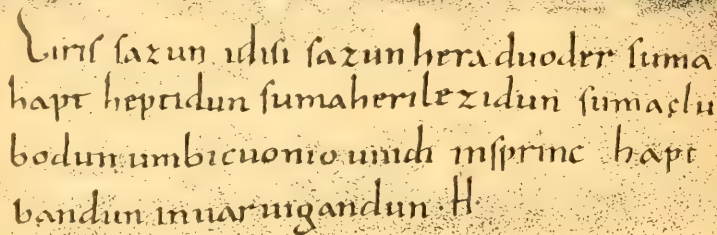 Eiris sazun idisi sazun hera duoder suma
hapt heptidun suma heri lezidun suma clu
bodun umbicuonio uuidi insprinc hapt
bandun inuar uigandun · H ·